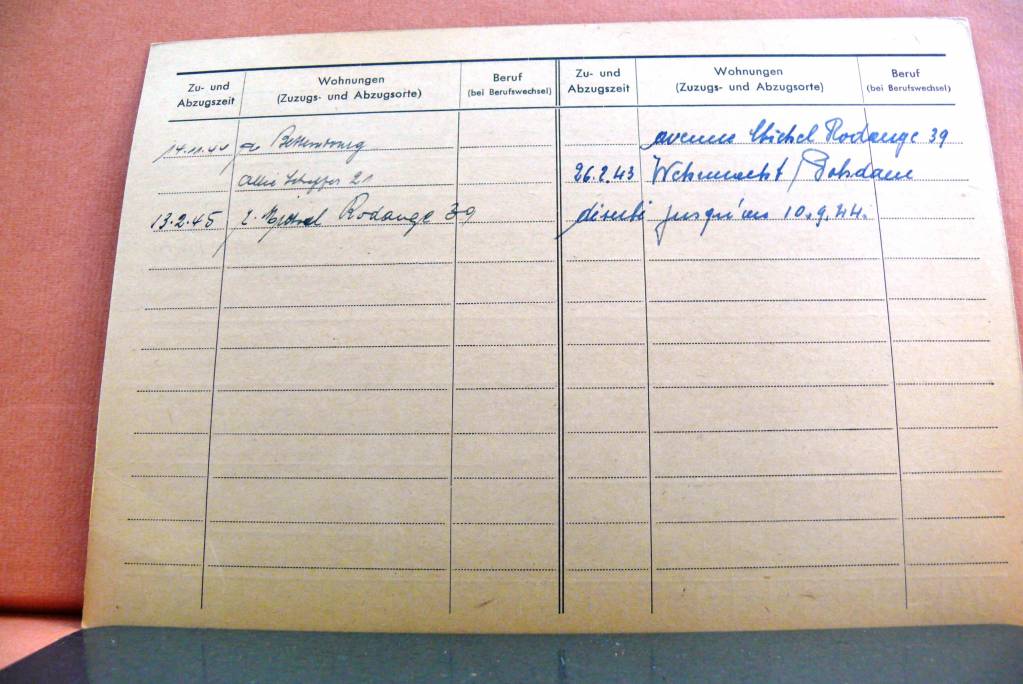 Zu- und Abzugszeit
Wohnungen
(Zuzugs- und Abzugsorte)
Beruf
(bei Berufswechsel)
Zu- und Abzugszeit
Wohnungen
(Zuzugs- und Abzugsorte)
Beruf
(bei Berufswechsel)
14.11.44 Bettembourg
21
13.2.45 Rodange 39
avenue Michel Rodange 39
26.2.43 Wehrmacht / Potsdam
jusqu'au 10.9.44.